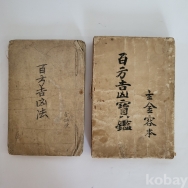 百方吉凶法
百方吉凶寶鑑
古今容本
kobay